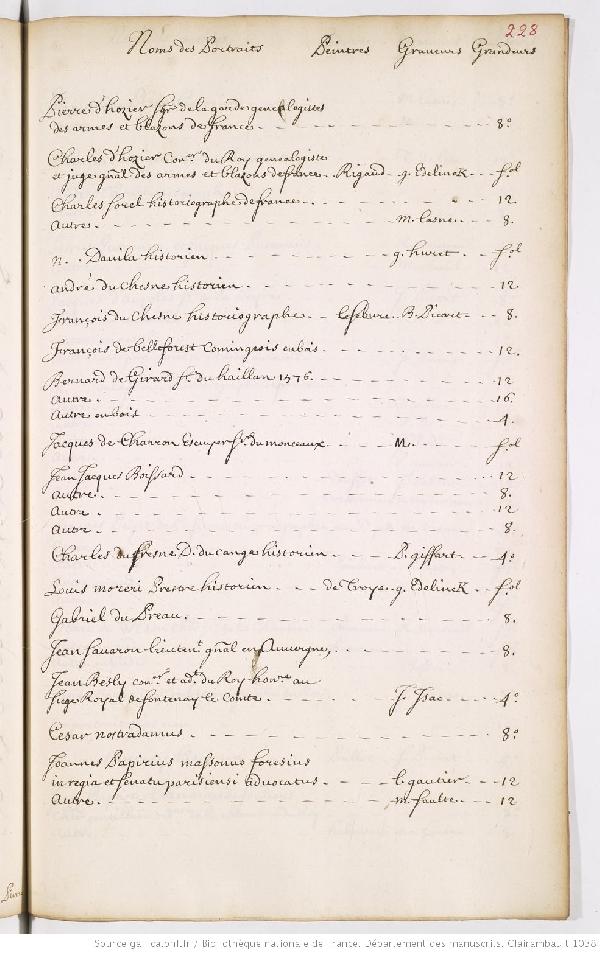 228
Noms des Portraits Peintres Graveurs Grandeurs
Pierre d'hozier Sgr. de la garde genealogistes
des armes et blazons de france - - - 8.º
Charles d'hozier Coner. du Roy genealogiste
et juge gnal des armes et blazons de france - - Rigaud - g. Edelinck - - fol
Charles sorel historiographe de france - - - 12
Autres - - - m. Lasne - - 8.
n. . Davila historien - - - g. huret - - fol
André du Chesne historien - - - 12.
François du Chesne historiographe - - Lefebure - B. Picart - - 8.
François de belleforest Comingeois en bois - - - 12.
Bernard de Girard sr. du haillan 1576 - - - 12
Autre - - - 16.
Autre en bois - - - 4.
Jacques de Charron Escuyer sr. du monceaux - - - M. - - - fol
Jean Jacques Boissard - - - 12
Autre - - - 8.
Autre - - - 12
Autre - - - 8
Charles du fresne D. du cange historien - - - P. giffart - - 4.º
Louis moreri Prestre historien - - - de Troye - g. Edelinck - - fol
Gabriel du Preau - - - 8.
Jean Savaron lieutent. gnal en Auvergne, - - - 8.
Jean Besly coner. et adt. du Roy honre au
siege Royal de fontenay le Comte - - - J. Isac - - 4.º
Cesar nostradamus - - - 8.º
Joannes Papirius massonus foresius
in regia et senatu parisiensi advocatus - - - L. gautier - - 12
Autre - - - m. faulte - - 12
Source gallica.bnf.fr / Bibliothèque nationale de France. Département des manuscrits. Clairambault 1038